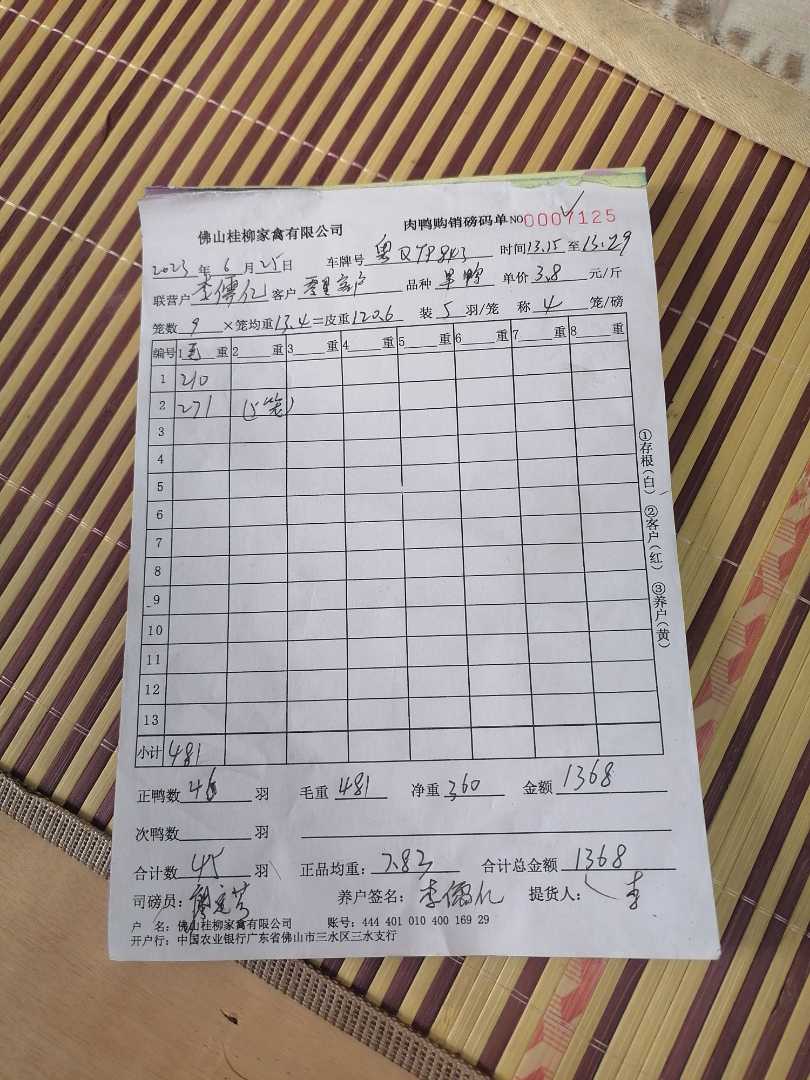 佛山桂柳家禽有限公司 肉鸭购销磅码单 NO 0007125
2023年6月25日 车牌号 粤Q 时间13.15至13.29
联营户 李儒亿 客户 品种 单价3.8元/斤
笼数 9 ×笼均重13.4=皮重120.6 装 5 羽/笼 称 4 笼/磅
编号 1毛重 2 重 3 重 4 重 5 重 6 重 7 重 8 重
1 210
2 271 (5笼)
3
4
5
6
7
8
9
10
11
12
13
小计 481
正鸭数 羽 毛重 481 净重 360 金额 1368
次鸭数 羽
合计数 45 羽 正品均重: 7.83 合计总金额 1368
司磅员: 养户签名: 李儒亿 提货人: 李
户 名: 佛山桂柳家禽有限公司 账号: 444 401 010 400 169 29
开户行: 中国农业银行广东省佛山市三水区三水支行
①存根(白) ②客户(红) ③养户(黄)